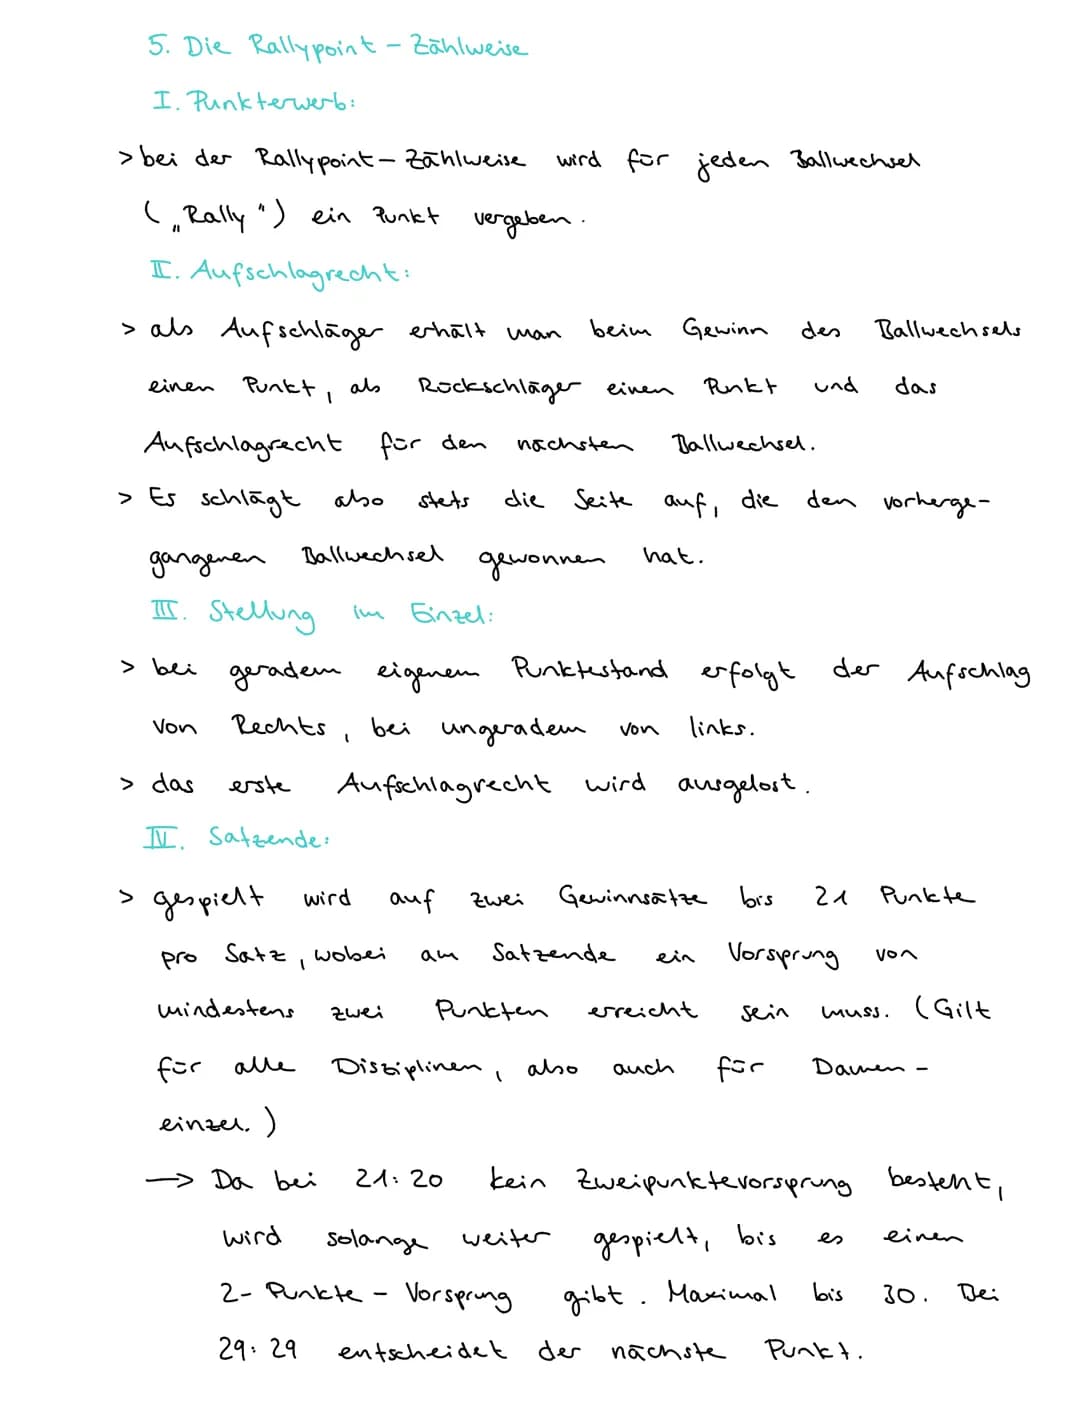 5. Die Rallypoint - Zählweise
I. Punkterwerb:
> bei der Rallypoint - Zählweise wird für jeden Ballwechsel
(„Rally") ein Punkt vergeben.
II. Aufschlagrecht:
> als Aufschläger erhält man beim Gewinn des Ballwechsels
einen Punkt, als Rückschläger einen Punkt und das
Aufschlagrecht für den nächsten Ballwechsel.
> Es schlägt also stets die Seite auf, die den vorherge-
gangenen Ballwechsel gewonnen hat.
III. Stellung im Einzel:
> bei geradem eigenem Punktestand erfolgt der Aufschlag
von Rechts, bei ungeradem von links.
> das erste Aufschlagrecht wird ausgelost.
IV. Satzende:
> gespielt wird auf zwei Gewinnsätze bis 21 Punkte
pro Satz, wobei am Satzende ein Vorsprung von
mindestens zwei Punkten erreicht sein muss. (Gilt
für alle Disziplinen, also auch für Damen -
einzel.)
→ Da bei 21:20 kein Zweipunktevorsprung besteht,
wird solange weiter gespielt, bis es einen
2- Punkte - Vorsprung gibt. Maximal bis 30. Bei
29:29 entscheidet der nächste Punkt.